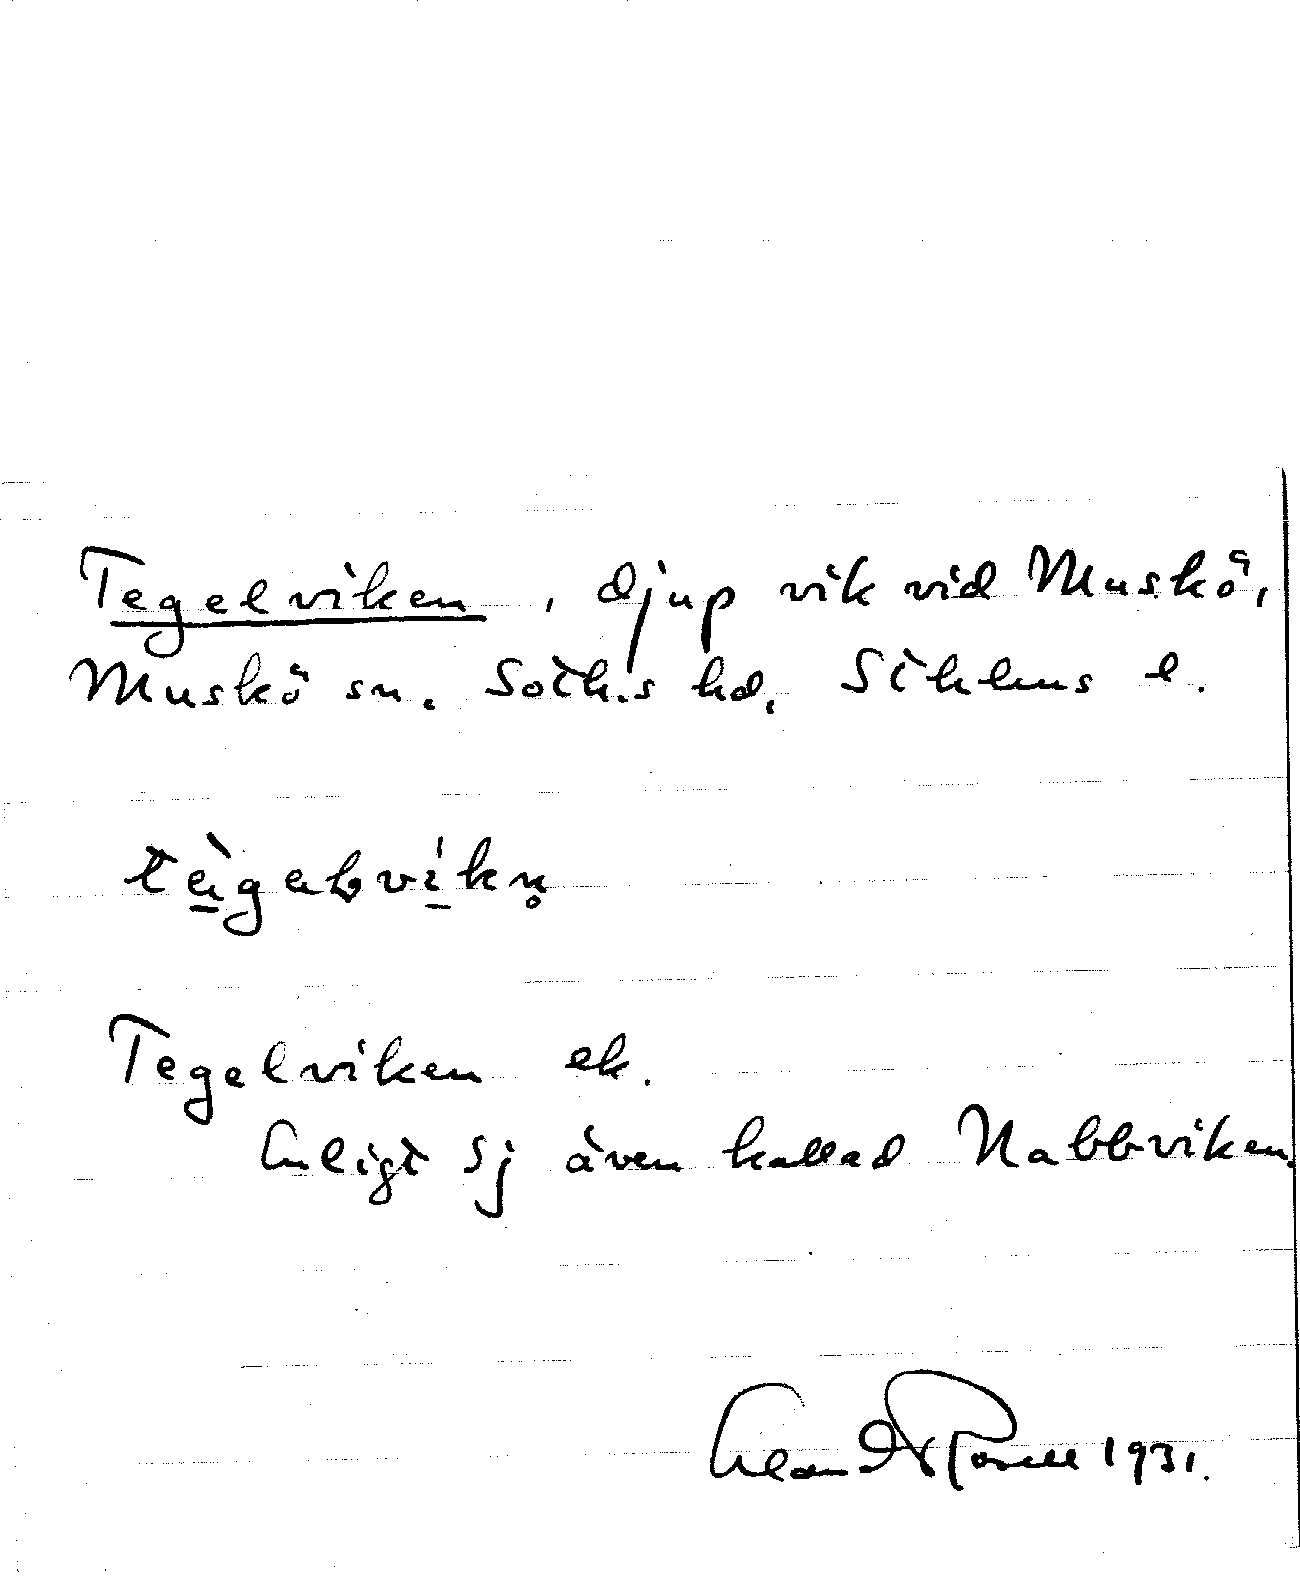 Tegelviken, djup vik vid Muskö,
Muskö sn. Soth.s hd. Sthlms l.
Tegelviken ek.
Enligt Sj även kallad Nabbviken.
1931.